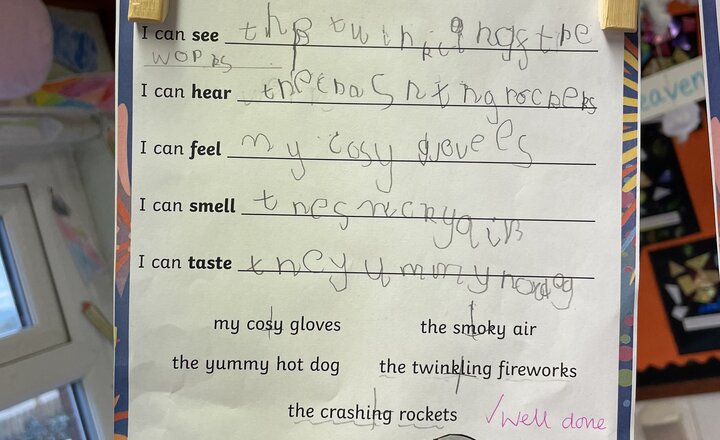 I can see the twinklingstre
worrks
I can hear thecrashtngrockeks
I can feel my cosy glovees
I can smell thesmokyair
I can taste theyummyhotdog
my cosy gloves the smoky air
the yummy hot dog the twinkling fireworks
the crashing rockets ✓ Well done
eaven